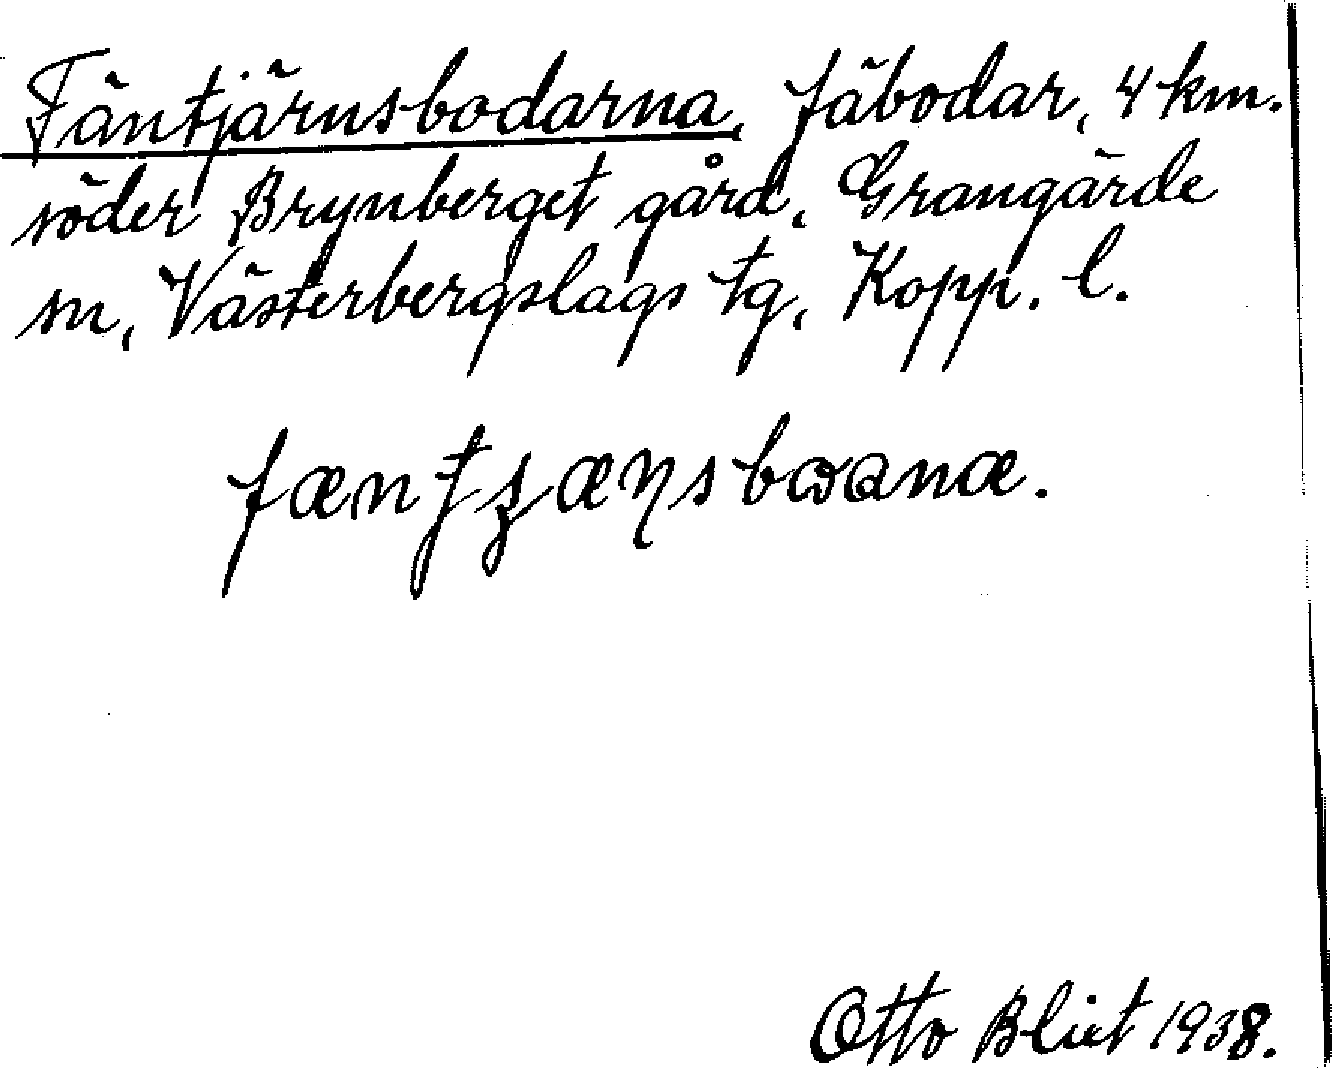 Fäntjärnsbodarna, fäbodar, 4 km.
söder Brynberget gård, Grangärde
sn, Västerbergslags tg, Kopp. l.
Otto Blixt 1938.